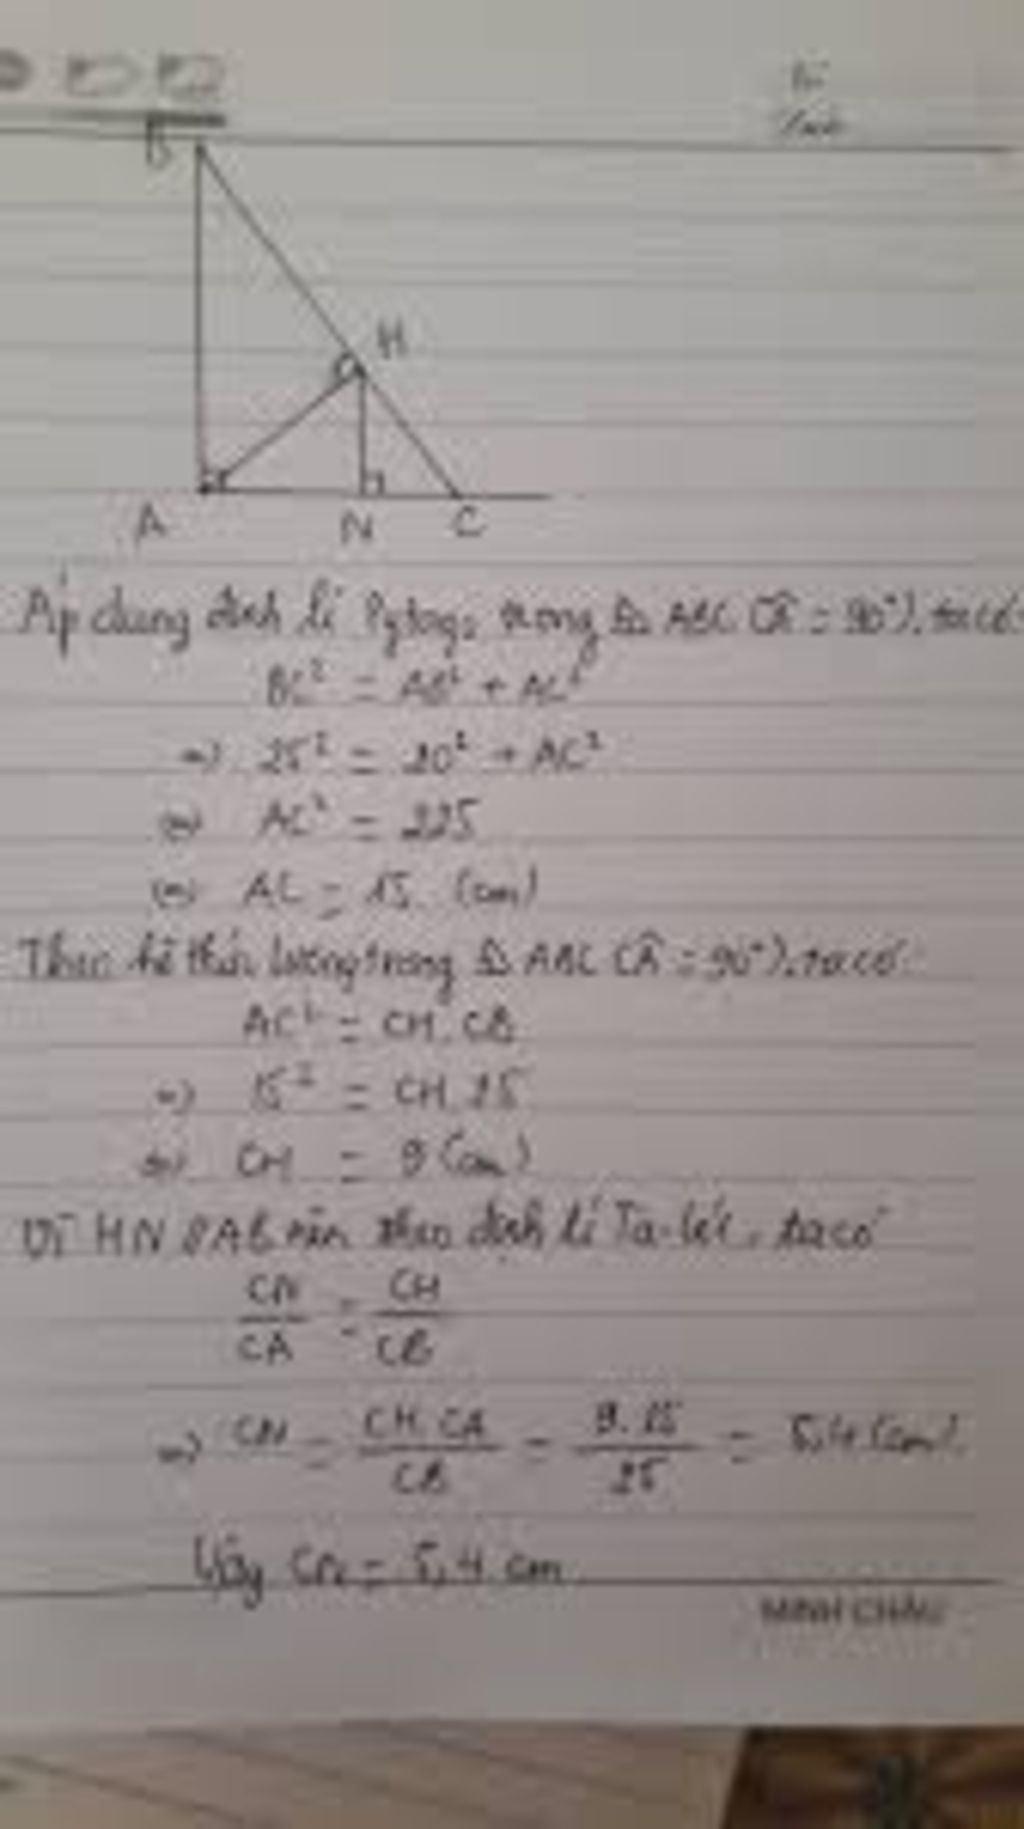 B
H
A N C
Áp dụng định lí Pytago trong △ ABC (Â = 90°), ta có:
BC² = AB² + AC²
=> 25² = 20² + AC²
<=> AC² = 225
<=> AC = 15 (cm)
Theo hệ thức lượng trong △ ABC (Â = 90°), ta có:
AC² = CH.CB
=> 15² = CH.25
<=> CH = 9 (cm)
Vì HN // AB nên theo định lí Ta-lét, ta có
CN/CA = CH/CB
=> CN = CH.CA/CB = 9.15/25 = 5,4 (cm).
Vậy CN = 5,4 cm
MINH CHÂU